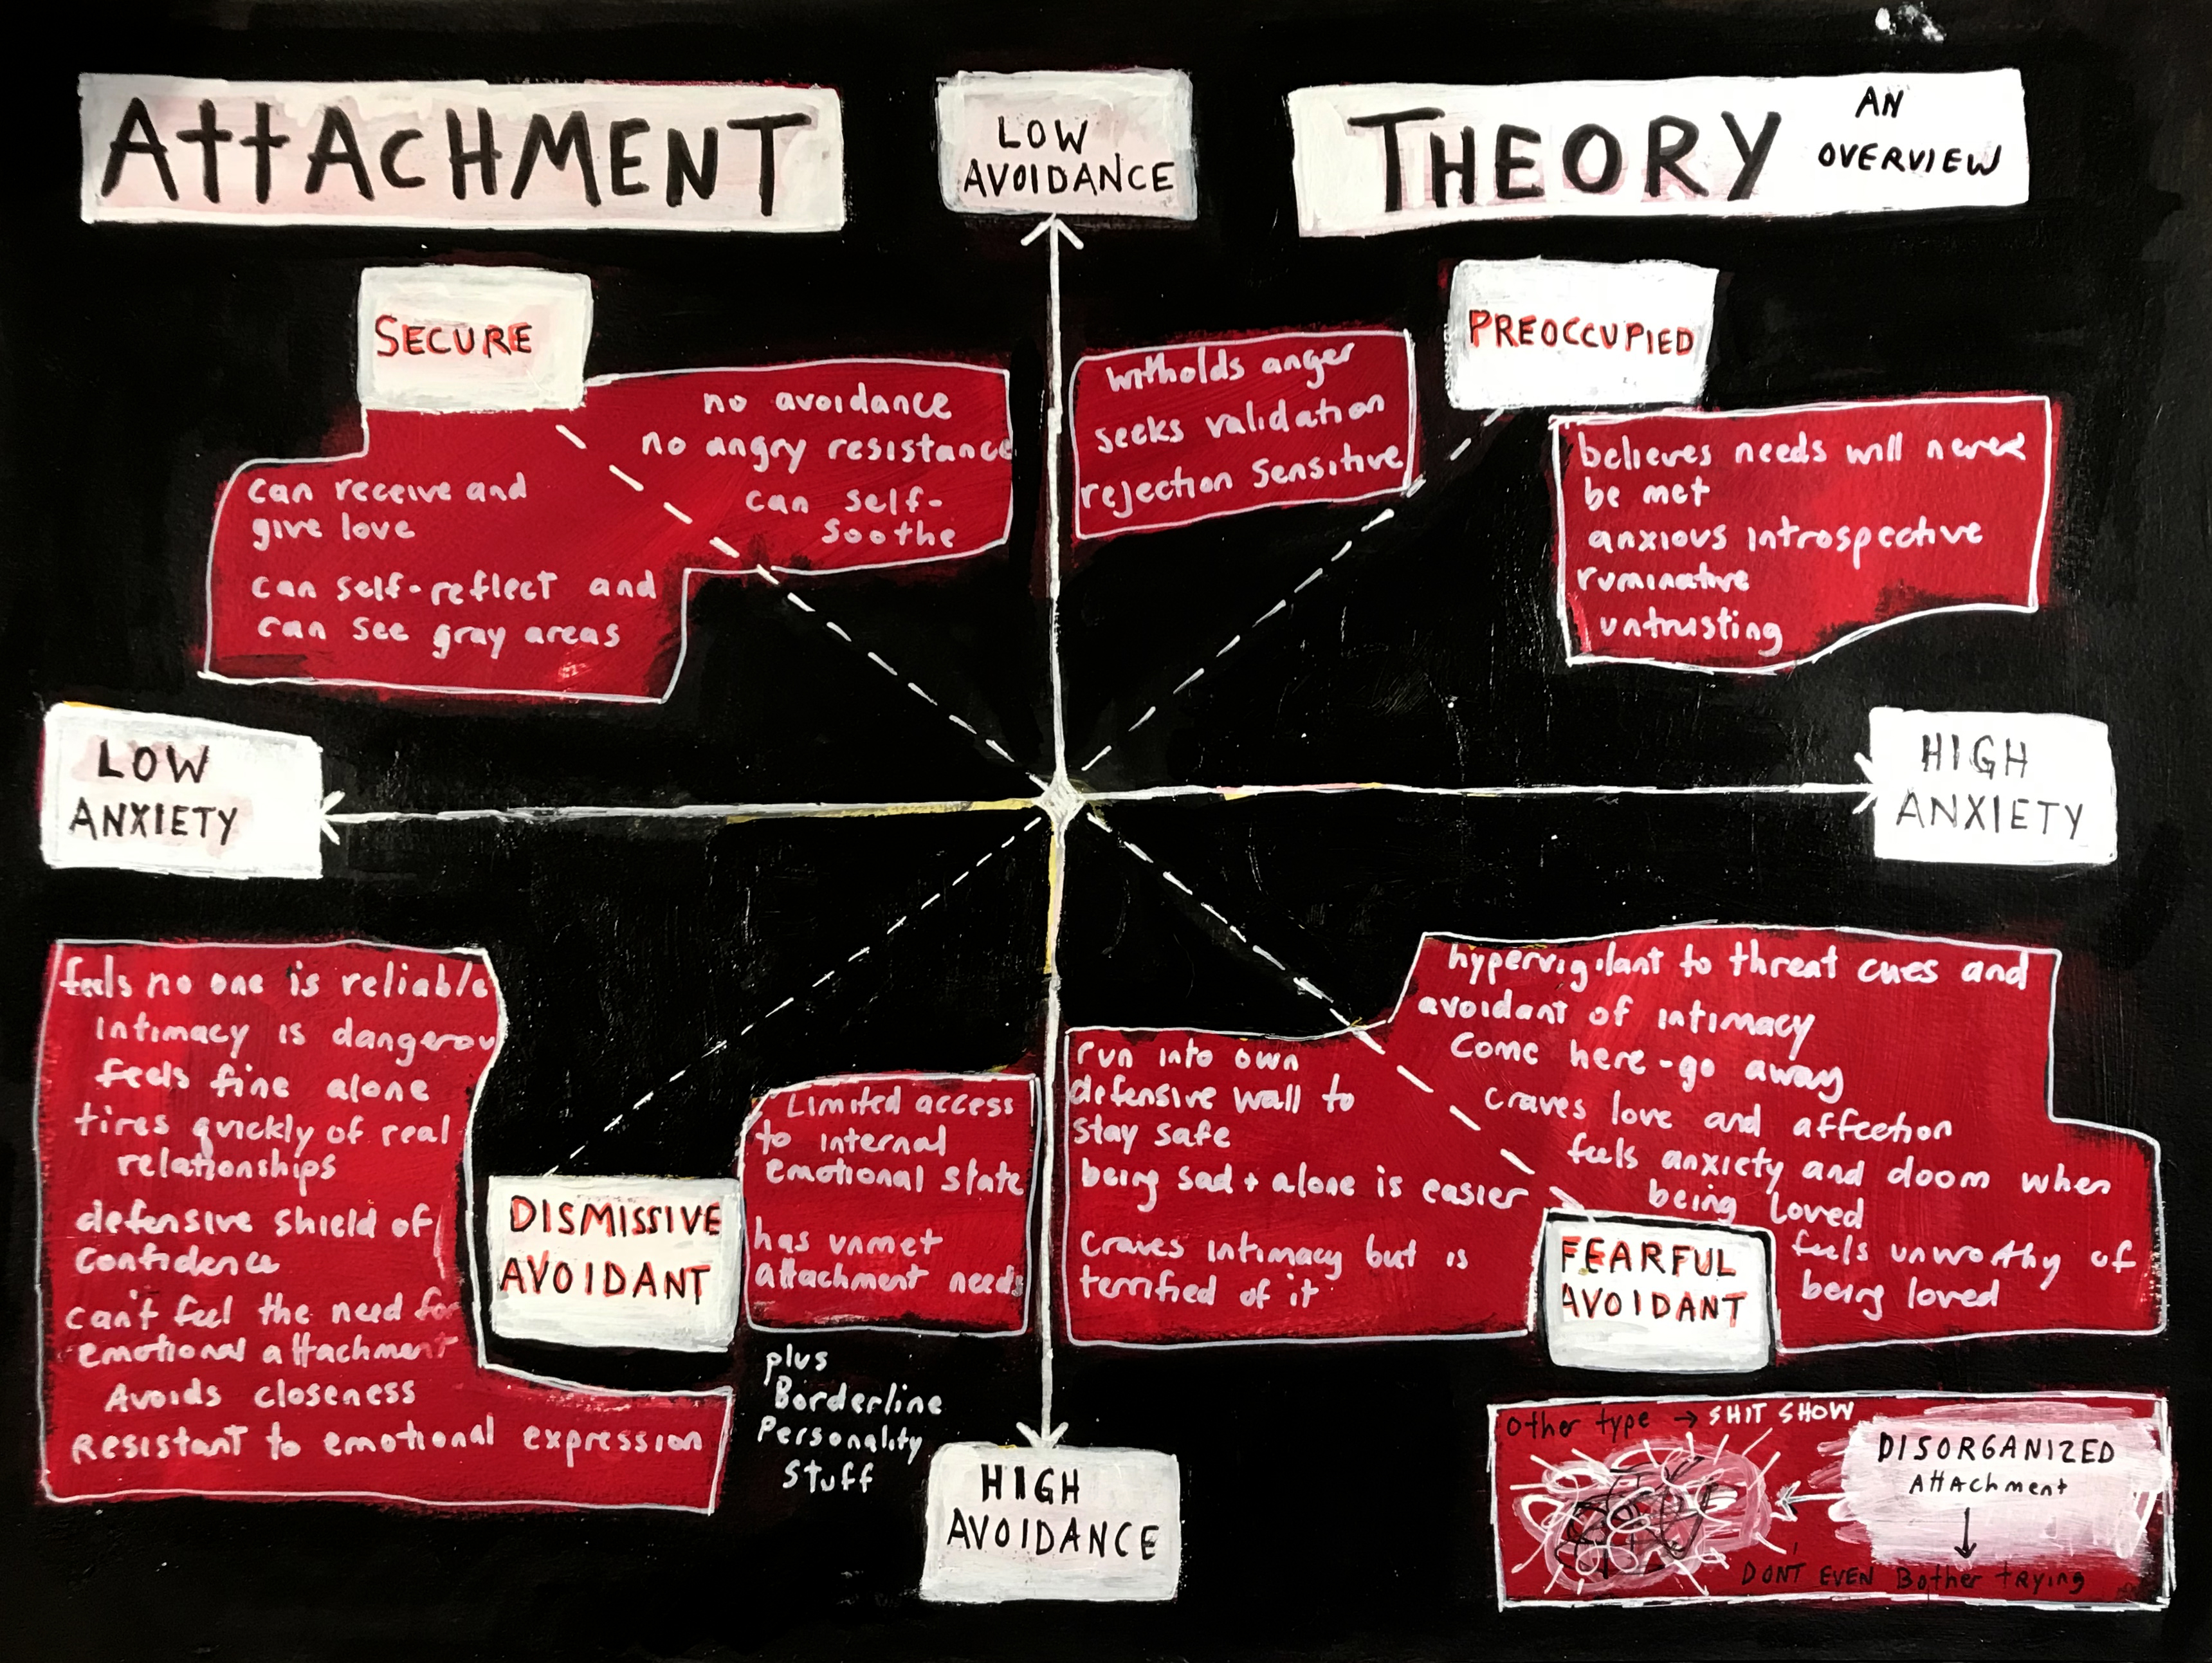 ATTACHMENT
LOW
AVOIDANCE
THEORY
AN
OVERVIEW
SECURE
no avoidance
no angry resistance
can self-
soothe
can receive and
give love
can self-reflect and
can see gray areas
witholds anger
seeks validation
rejection sensitive
PREOCCUPIED
believes needs will never
be met
anxious introspective
ruminative
untrusting
LOW
ANXIETY
HIGH
ANXIETY
feels no one is reliable
intimacy is dangerou
feels fine alone
tires quickly of real
relationships
defensive shield of
confidence
can't feel the need for
emotional attachment
Avoids closeness
Resistant to emotional expression
DISMISSIVE
AVOIDANT
Limited access
to internal
emotional state
has unmet
attachment needs
plus
Borderline
Personality
Stuff
HIGH
AVOIDANCE
run into own
defensive wall to
stay safe
being sad + alone is easier
craves intimacy but is
terrified of it
hypervigilant to threat cues and
avoidant of intimacy
Come here-go away
craves love and affection
feels anxiety and doom when
being loved
feels unworthy of
being loved
FEARFUL
AVOIDANT
Other type → SHIT SHOW
DISORGANIZED
Attachment
DON'T EVEN Bother trying